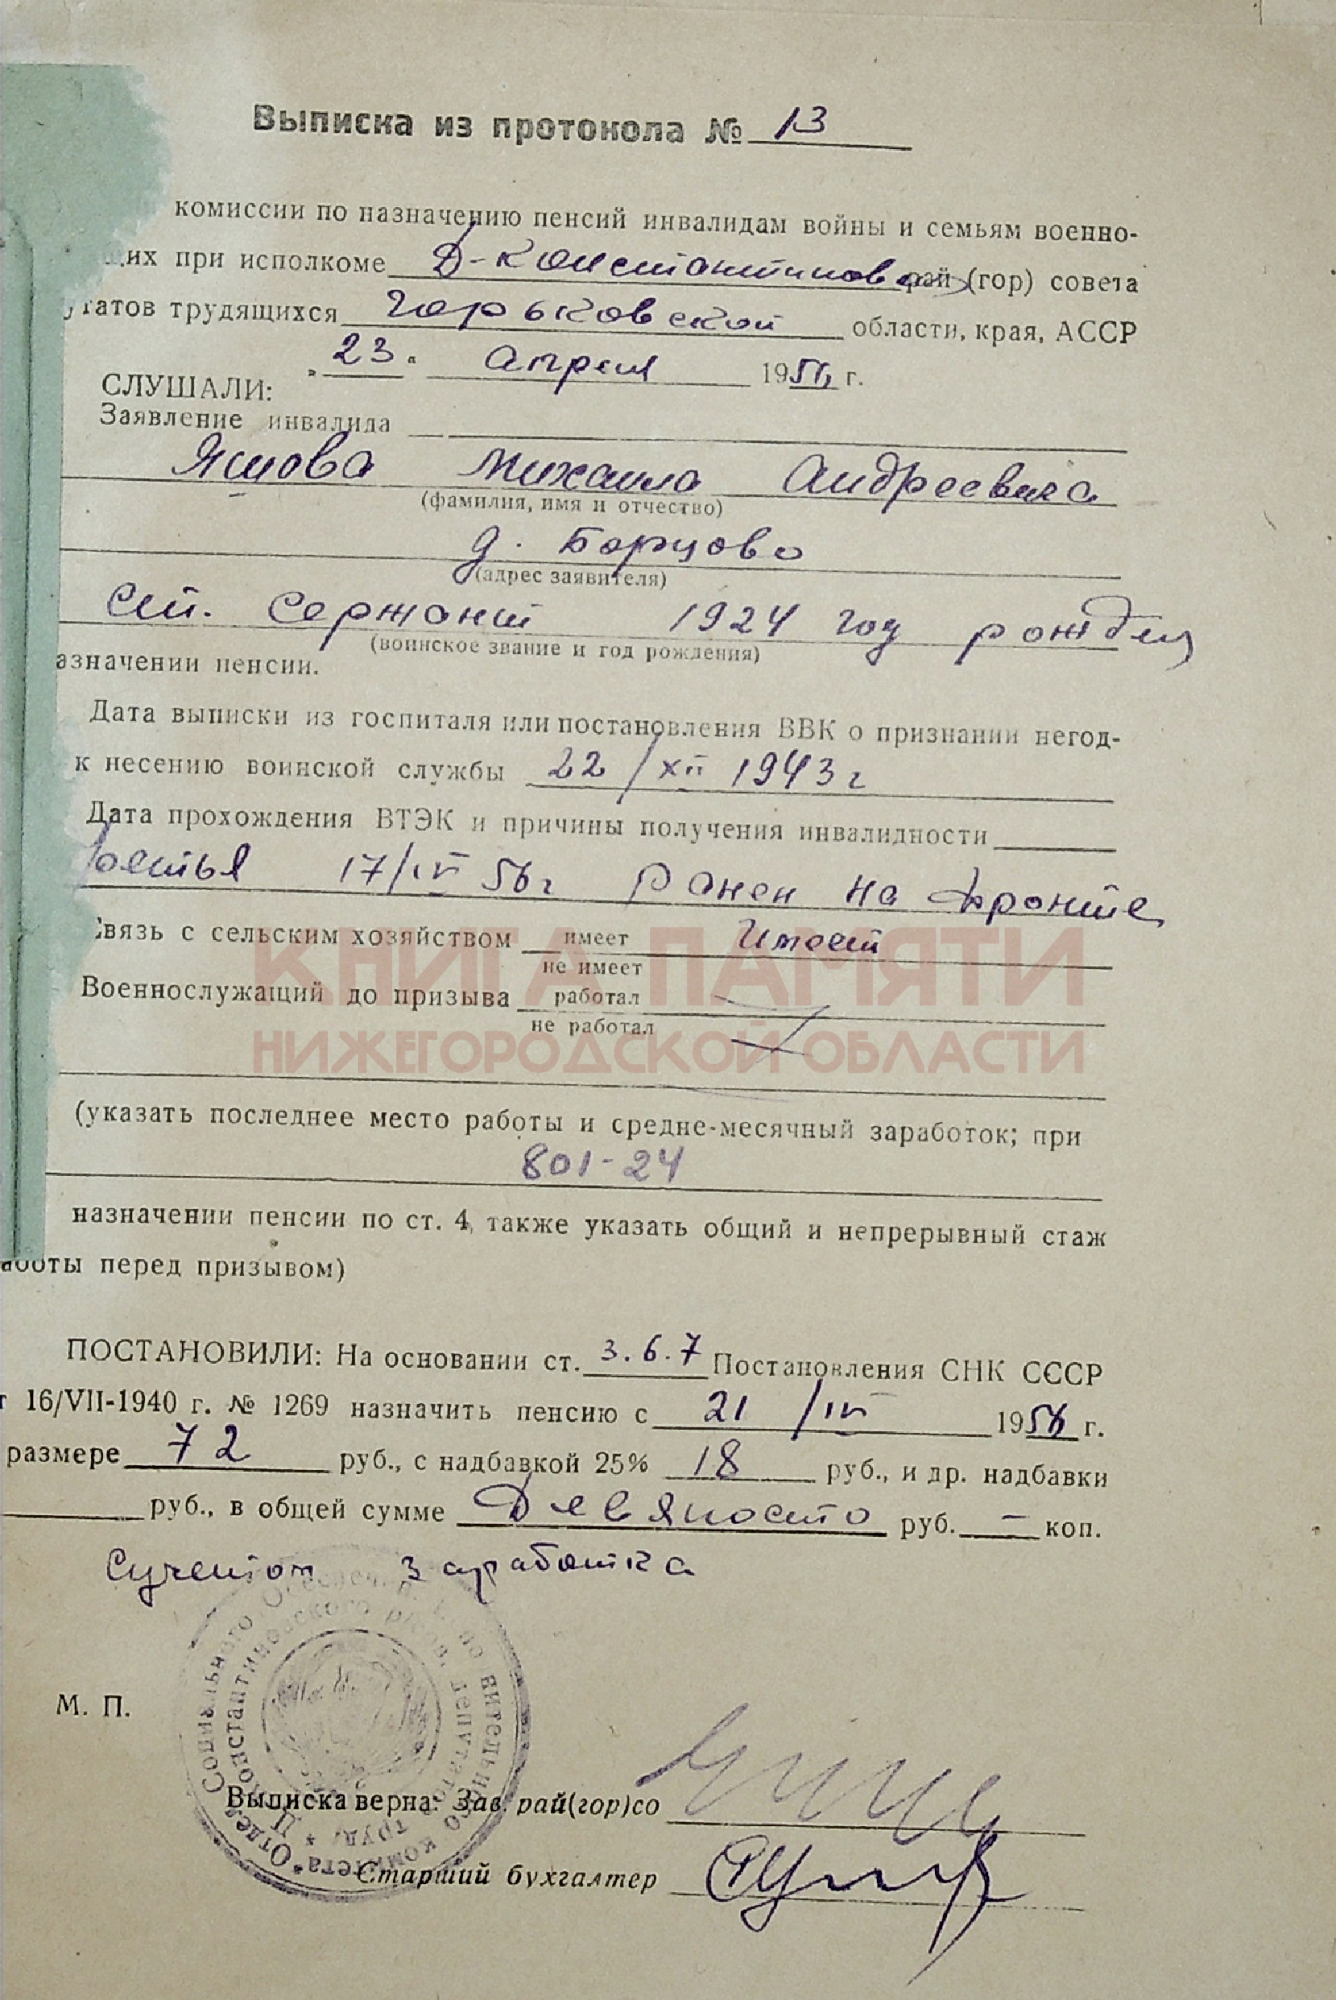 Выписка из протокола № 13
комиссии по назначению пенсий инвалидам войны и семьям военно-
щих при исполкоме Д-Константиновск рай (гор) совета
утатов трудящихся Горьковской области, края, АССР
„ 23 “ апреля 1956 г.
СЛУШАЛИ:
Заявление инвалида
Яшова Михаила Андреевича
(фамилия, имя и отчество)
д. Борцово
(адрес заявителя)
ст. сержант 1924 год рожден
(воинское звание и год рождения)
азначении пенсии.
Дата выписки из госпиталя или постановления ВВК о признании негод-
к несению воинской службы 22/XII 1943 г
Дата прохождения ВТЭК и причины получения инвалидности
третья 17/IV 56 г Ранен на фронте
Связь с сельским хозяйством имеет Имеет
не имеет
Военнослужащий до призыва работал
не работал
КНИГА ПАМЯТИ
НИЖЕГОРОДСКОЙ ОБЛАСТИ
(указать последнее место работы и средне-месячный заработок; при
801-24
назначении пенсии по ст. 4, также указать общий и непрерывный стаж
аботы перед призывом)
ПОСТАНОВИЛИ: На основании ст. 3.6.7 Постановления СНК СССР
т 16/VII-1940 г. № 1269 назначить пенсию с 21/IV 1956 г.
размере 72 руб., с надбавкой 25% 18 руб., и др. надбавки
руб., в общей сумме Девяносто руб. — коп.
Сучетом заработка
М. П.
Отдел Социального Обеспеч.
Константиновского район. депутатов труд.
Выписка верна: Зав. рай(гор)со
Старший бухгалтер